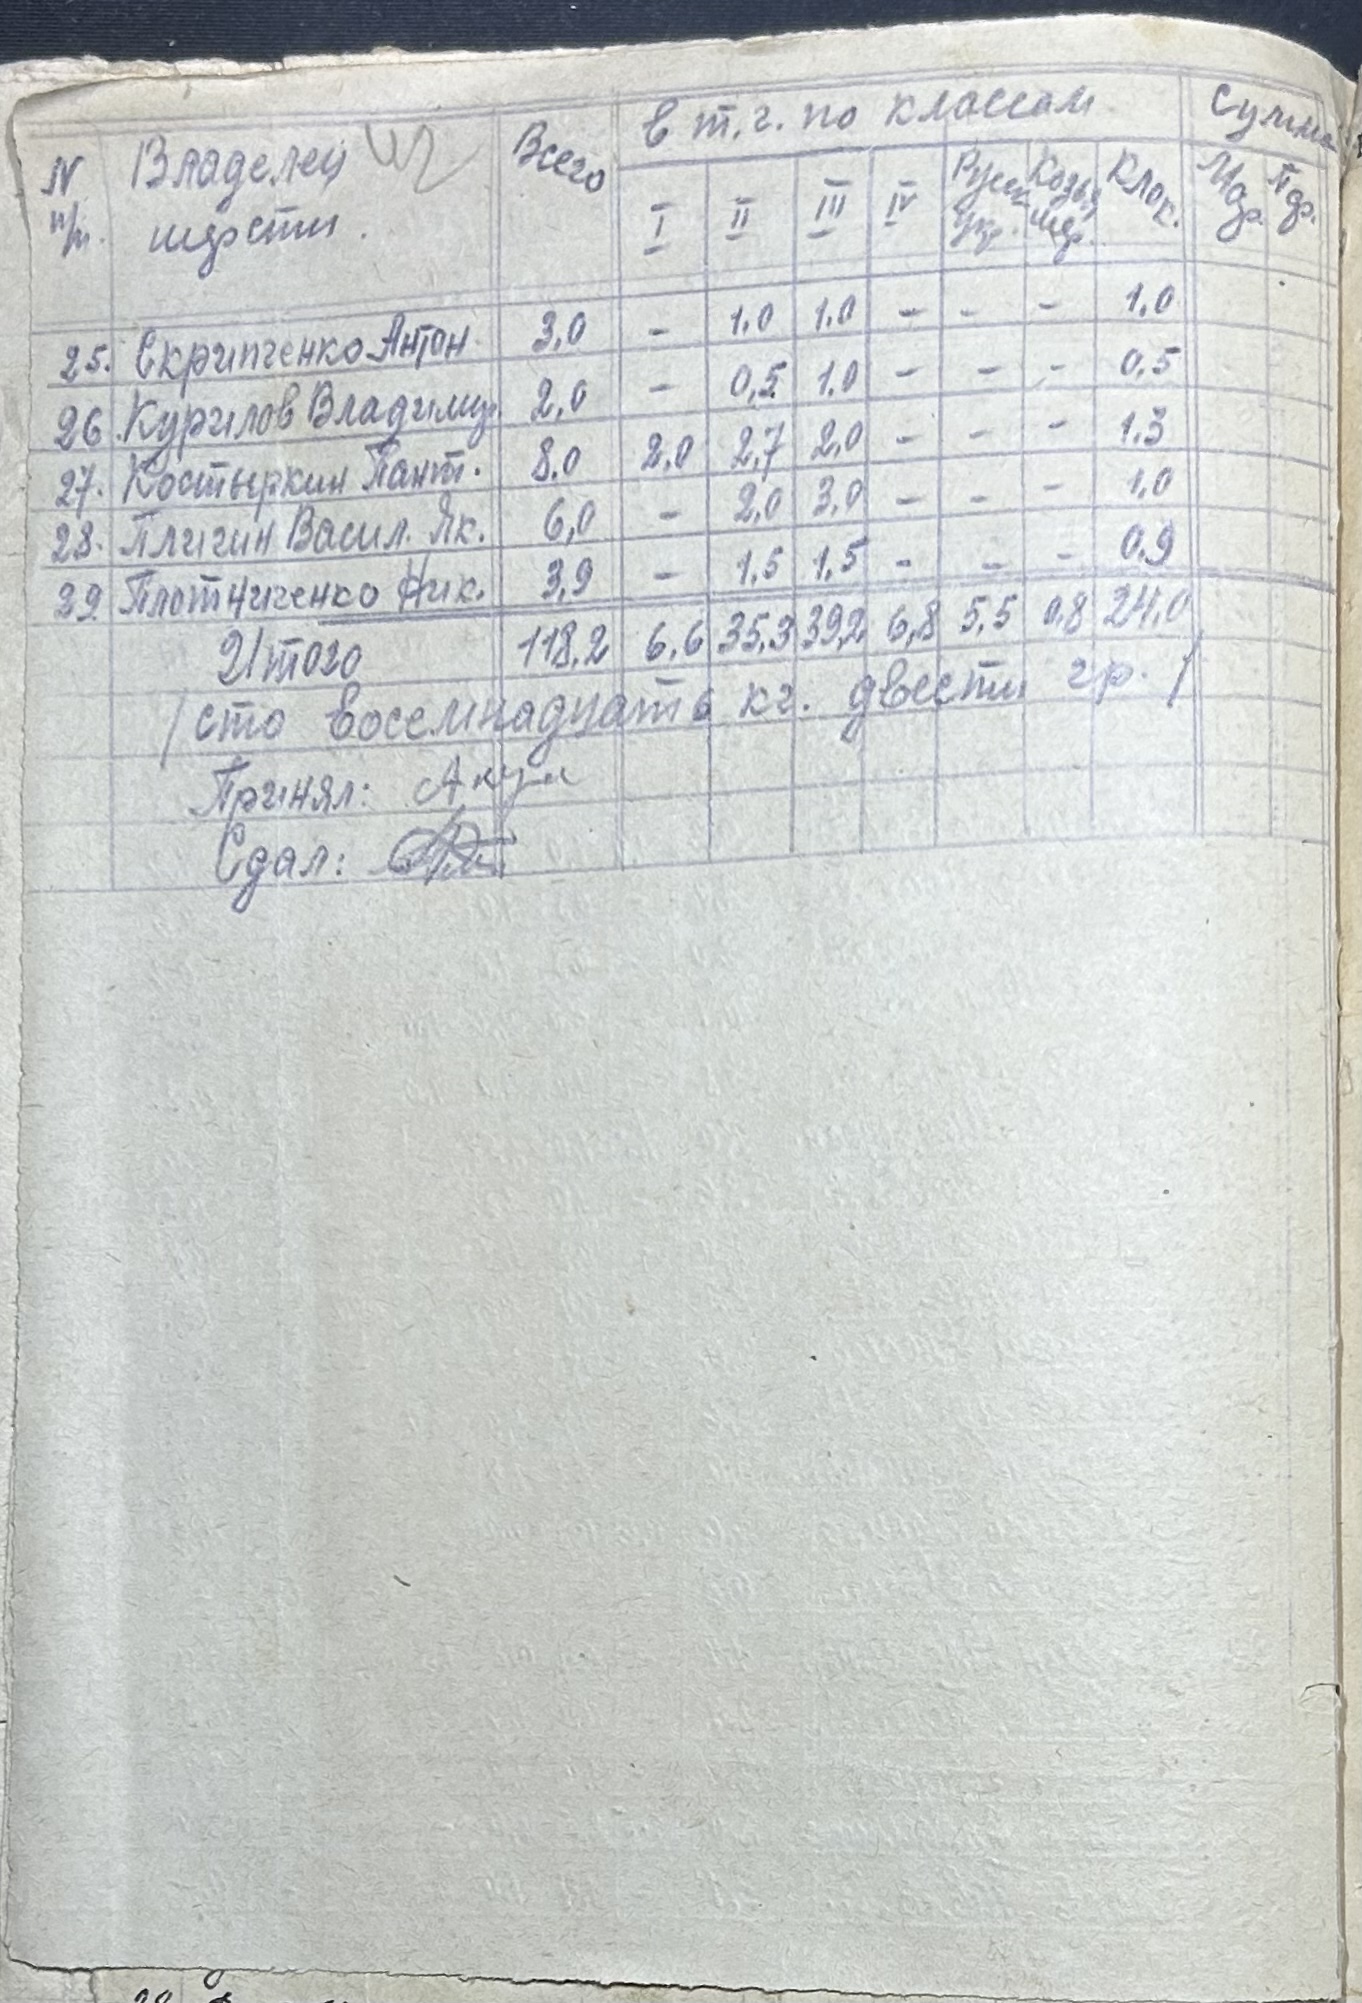 N п/п. Владелец шерсти. Всего в т.г. по классам Сумма
I II III IV Русск. Козья Клок.
25. Скрипченко Антон 3,0 – 1.0 1.0 – – – 1,0
26. Курилов Владимир 2,0 – 0,5 1.0 – – – 0,5
27. Костыркин Пант. 8.0 2.0 2,7 2,0 – – – 1.3
28. Плигин Васил. Як. 6,0 – 2,0 3,0 – – – 1,0
29. Плотниченко Ник. 3,9 – 1,5 1,5 – – – 0,9
Итого 118,2 6,6 35,3 39,2 6,8 5,5 0,8 24,0
/сто восемнадцать кг. двести гр./
Принял:
Сдал: